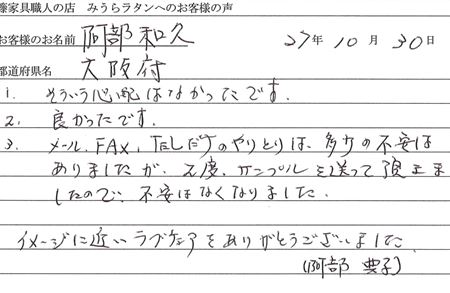 籐家具職人の店 みうらラタンへのお客様の声
お客様のお名前 阿部和久 27年10月30日
都道府県名 大阪府
1. そういう心配はなかったです.
2. 良かったです.
3. メール, FAX, TELだけのやりとりは, 多少の不安は
ありましたが, 2度, サンプルを送って頂きま
したので, 不安はなくなりました.
イメージに近いラブチェアをありがとうございました
(阿部 典子)